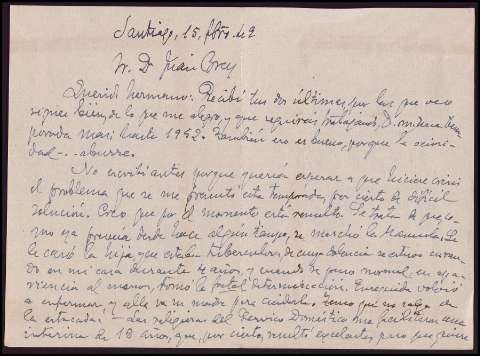 Santiago, 15, Fbro. 49
Sr. D. Juan Orey
Querido hermano: Recibí tus dos últimas, por las que veo
sigues bién, de lo que me alegro, y que seguirás trabajando, D. m.
hasta 1952. También eso es bueno, porque la ociosi-
dad... aburre.
No escribí antes porque quería esperar a que hiciere crisis
el problema que se me presentó esta temporada, por cierto de difícil
solución. Creo que por el momento está resuelto. Se trata de que, co-
mo ya preveía desde hace algún tiempo, se marchó la Manuela. Se
le casó la hija que estaba tuberculosa, de cuya dolencia se estuvo curan-
do en mi casa durante años, y cuando se puso normal, en apa-
riencia al menos, tomó la fatal determinación. Enseguida volvió
a enfermar y allá va su madre para cuidarla. Temo que no salga de
la estacada! - Las religiosas del Servicio Doméstico me facilitaron una
interina de 18 años, que, por cierto, resultó excelente, pero que